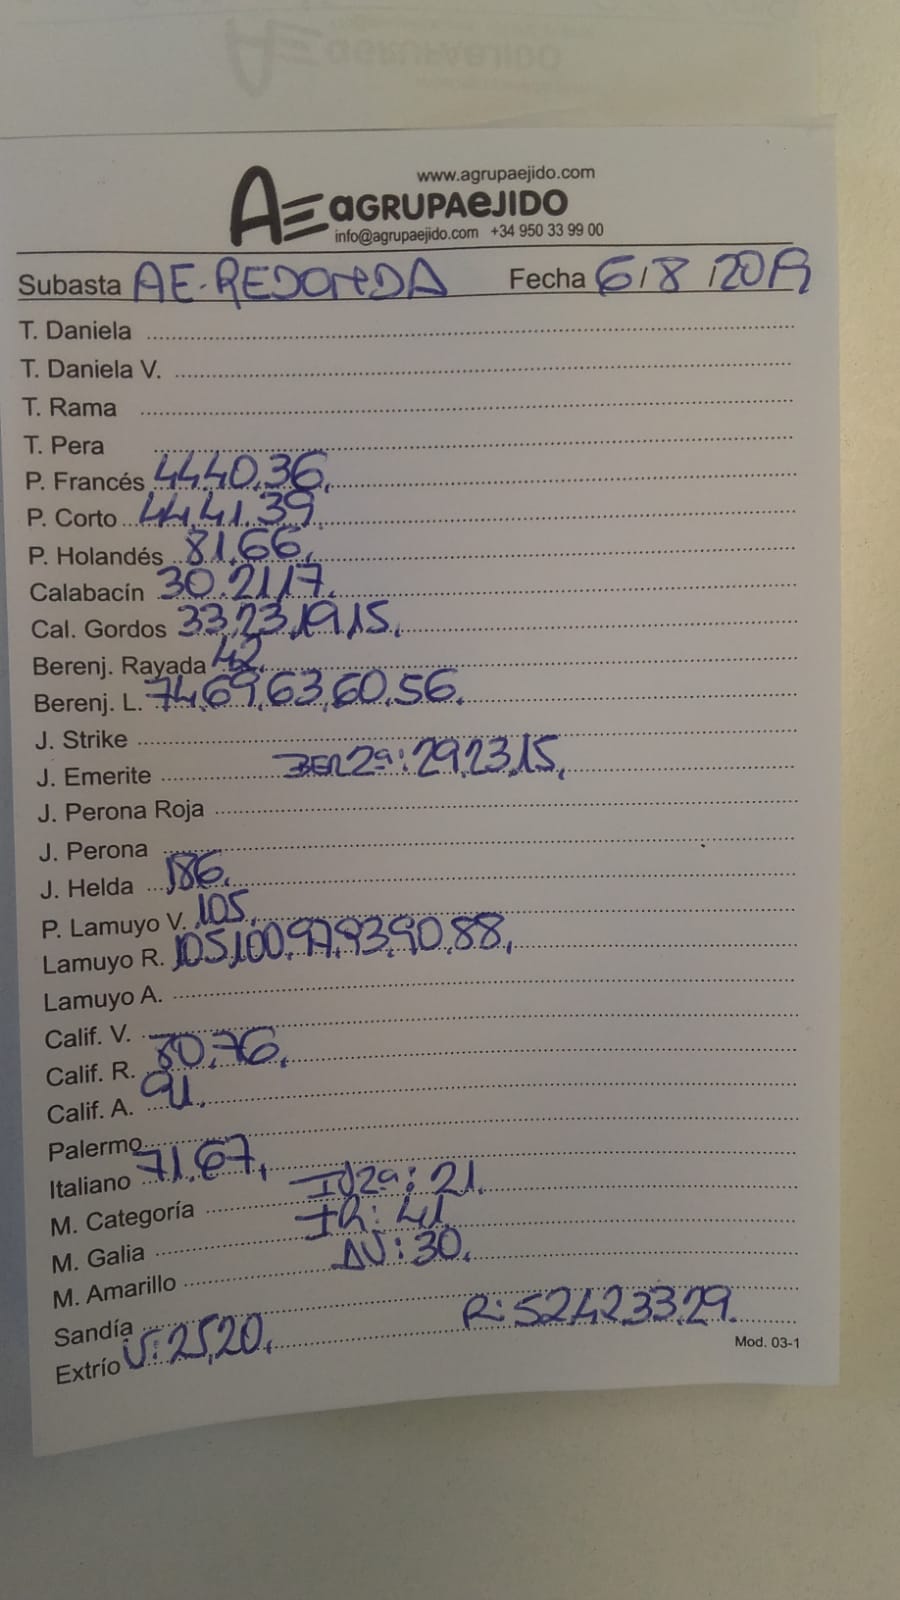 www.agrupaejido.com
AE aGRUPAeJIDO
info@agrupaejido.com +34 950 33 99 00
Subasta AE-REDONDA Fecha 6/8/2019
T. Daniela
T. Daniela V.
T. Rama
T. Pera
P. Francés 44,40,36.
P. Corto 44,41,39
P. Holandés 81,66.
Calabacín 30,21,17.
Cal. Gordos 33,23,19,15.
Berenj. Rayada 42.
Berenj. L. 74,69,63,60,56.
J. Strike
J. Emerite BER2a: 29,23,15.
J. Perona Roja
J. Perona
J. Helda 186.
P. Lamuyo V. 105.
Lamuyo R. 105,100,97,93,90,88.
Lamuyo A.
Calif. V.
Calif. R. 80,76.
Calif. A. 91.
Palermo
Italiano 71,67.
M. Categoría IV2a: 21.
M. Galia IR: 41
M. Amarillo AV: 30.
Sandía
Extrío V: 25,20. R: 52,42,33,29.
Mod. 03-1